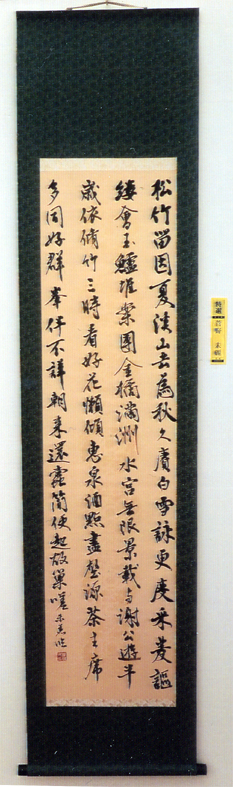 松竹留因夏溪山去為秋久賡白雪詠更度采菱謳
縷會玉鱸堆案團金橘滿洲水宮無限景載与謝公遊半
歲依脩竹三時看好花懶傾惠泉酒點盡壑源茶主席
多同好群峯伴不譁朝來還蠹簡便起故巢嗟
特選